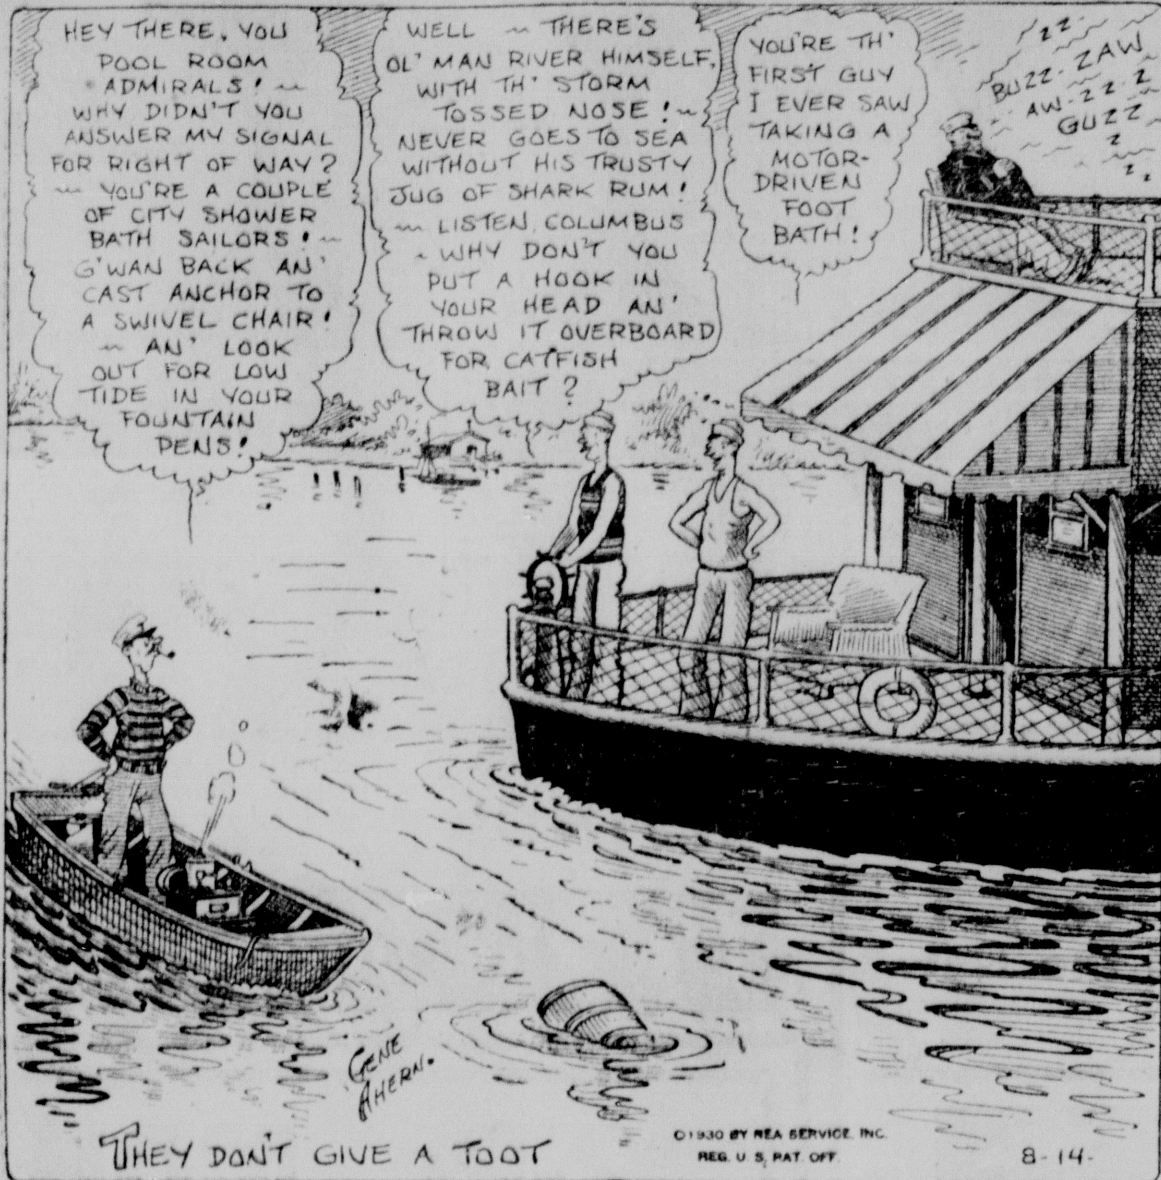 HEY THERE, YOU
POOL ROOM
ADMIRALS! ~
WHY DIDN'T YOU
ANSWER MY SIGNAL
FOR RIGHT OF WAY?
~ YOU'RE A COUPLE
OF CITY SHOWER
BATH SAILORS! ~
G'WAN BACK AN'
CAST ANCHOR TO
A SWIVEL CHAIR!
~ AN' LOOK
OUT FOR LOW
TIDE IN YOUR
FOUNTAIN
PENS!
WELL ~ THERE'S
OL' MAN RIVER HIMSELF,
WITH TH' STORM
TOSSED NOSE! ~
NEVER GOES TO SEA
WITHOUT HIS TRUSTY
JUG OF SHARK RUM!
~ LISTEN, COLUMBUS
~ WHY DON'T YOU
PUT A HOOK IN
YOUR HEAD AN'
THROW IT OVERBOARD
FOR CATFISH
BAIT?
YOU'RE TH'
FIRST GUY
I EVER SAW
TAKING A
MOTOR-
DRIVEN
FOOT
BATH!
ZZ
BUZZ-ZAW
AW-ZZ-Z
GUZZ
Z
ZZ
GENE
AHERN.
THEY DON'T GIVE A TOOT
©1930 BY NEA SERVICE. INC.
REG. U. S. PAT. OFF.
8-14-